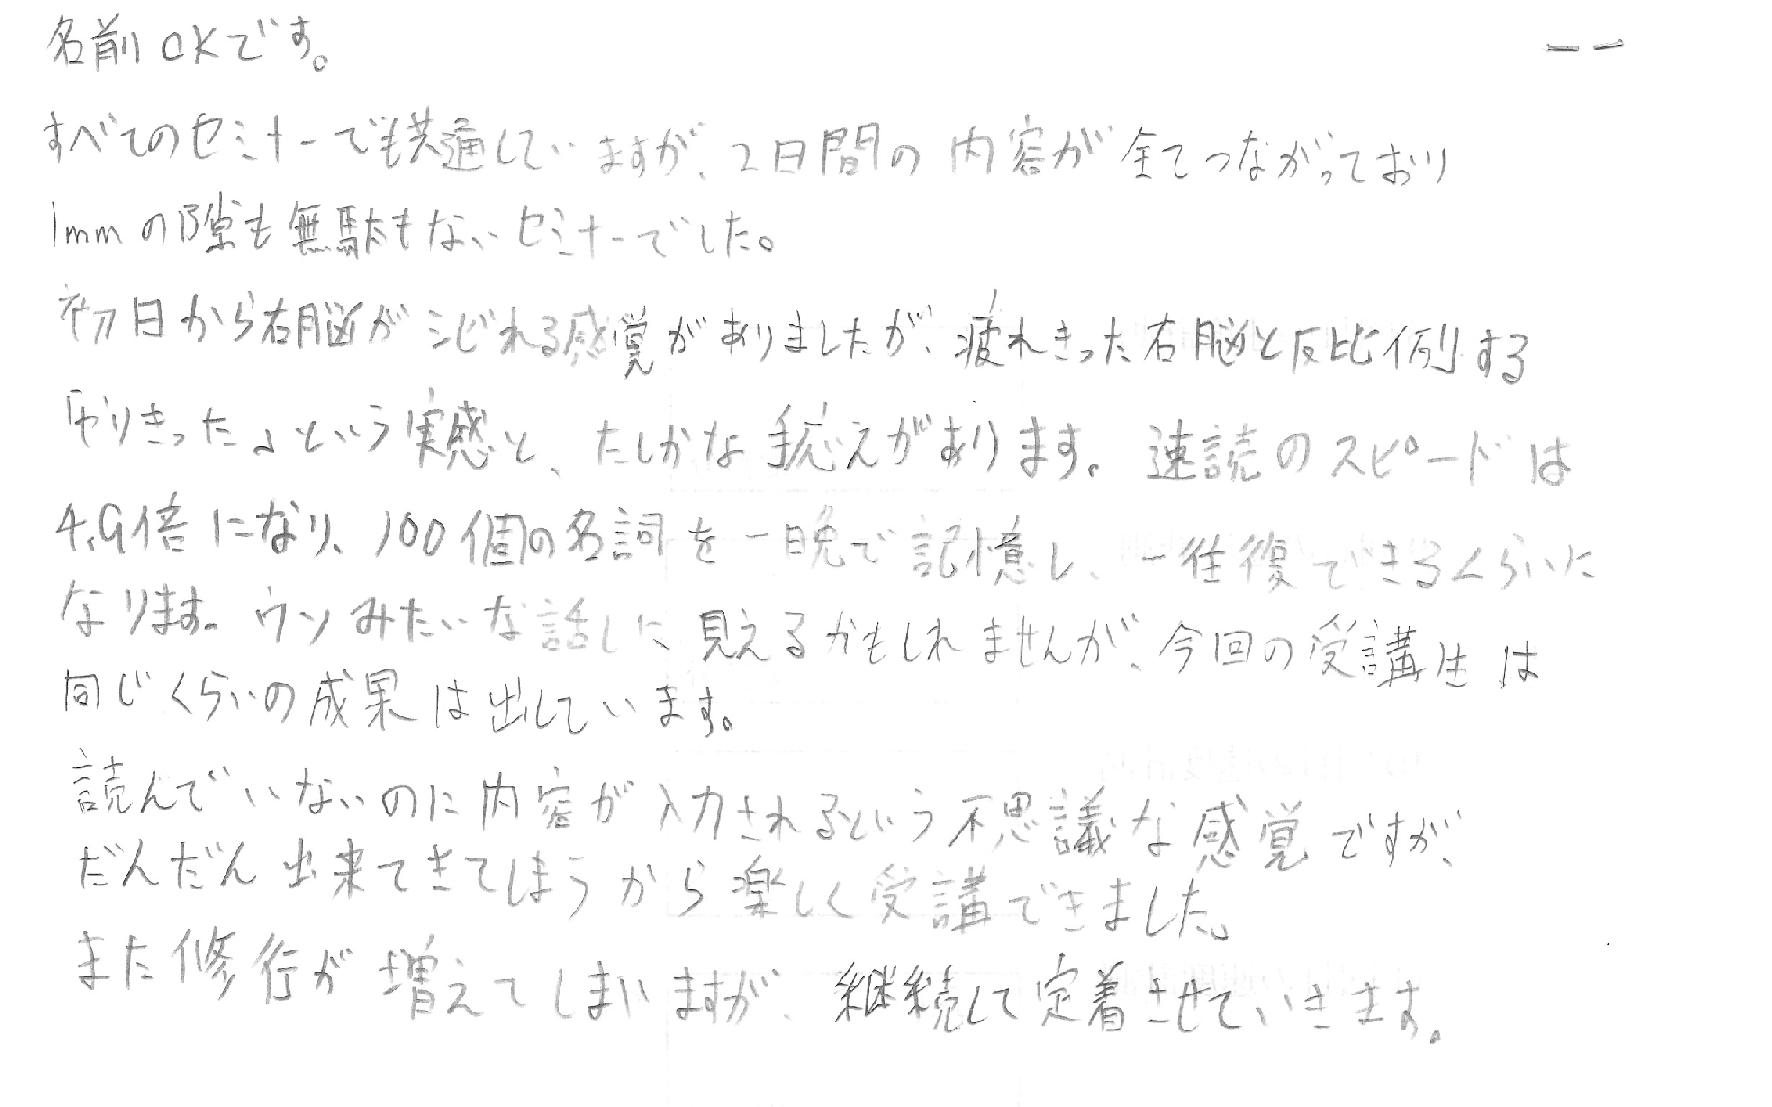 名前OKです。
すべてのセミナーでも共通していますが、2日間の内容が全てつながっており
1mmの隙も無駄もないセミナーでした。
初日から右脳がシビれる感覚がありましたが、疲れきった右脳と反比例する
「やりきった」という実感と、たしかな手応えがあります。速読のスピードは
4.9倍になり、100個の名詞を一晩で記憶し、一往復できるくらいに
なります。ウソみたいな話しに見えるかもしれませんが、今回の受講生は
同じくらいの成果は出しています。
読んでいないのに内容が入力されるという不思議な感覚ですが、
だんだん出来てきてしまうから楽しく受講できました。
また修行が増えてしまいますが、継続して定着させていきます。